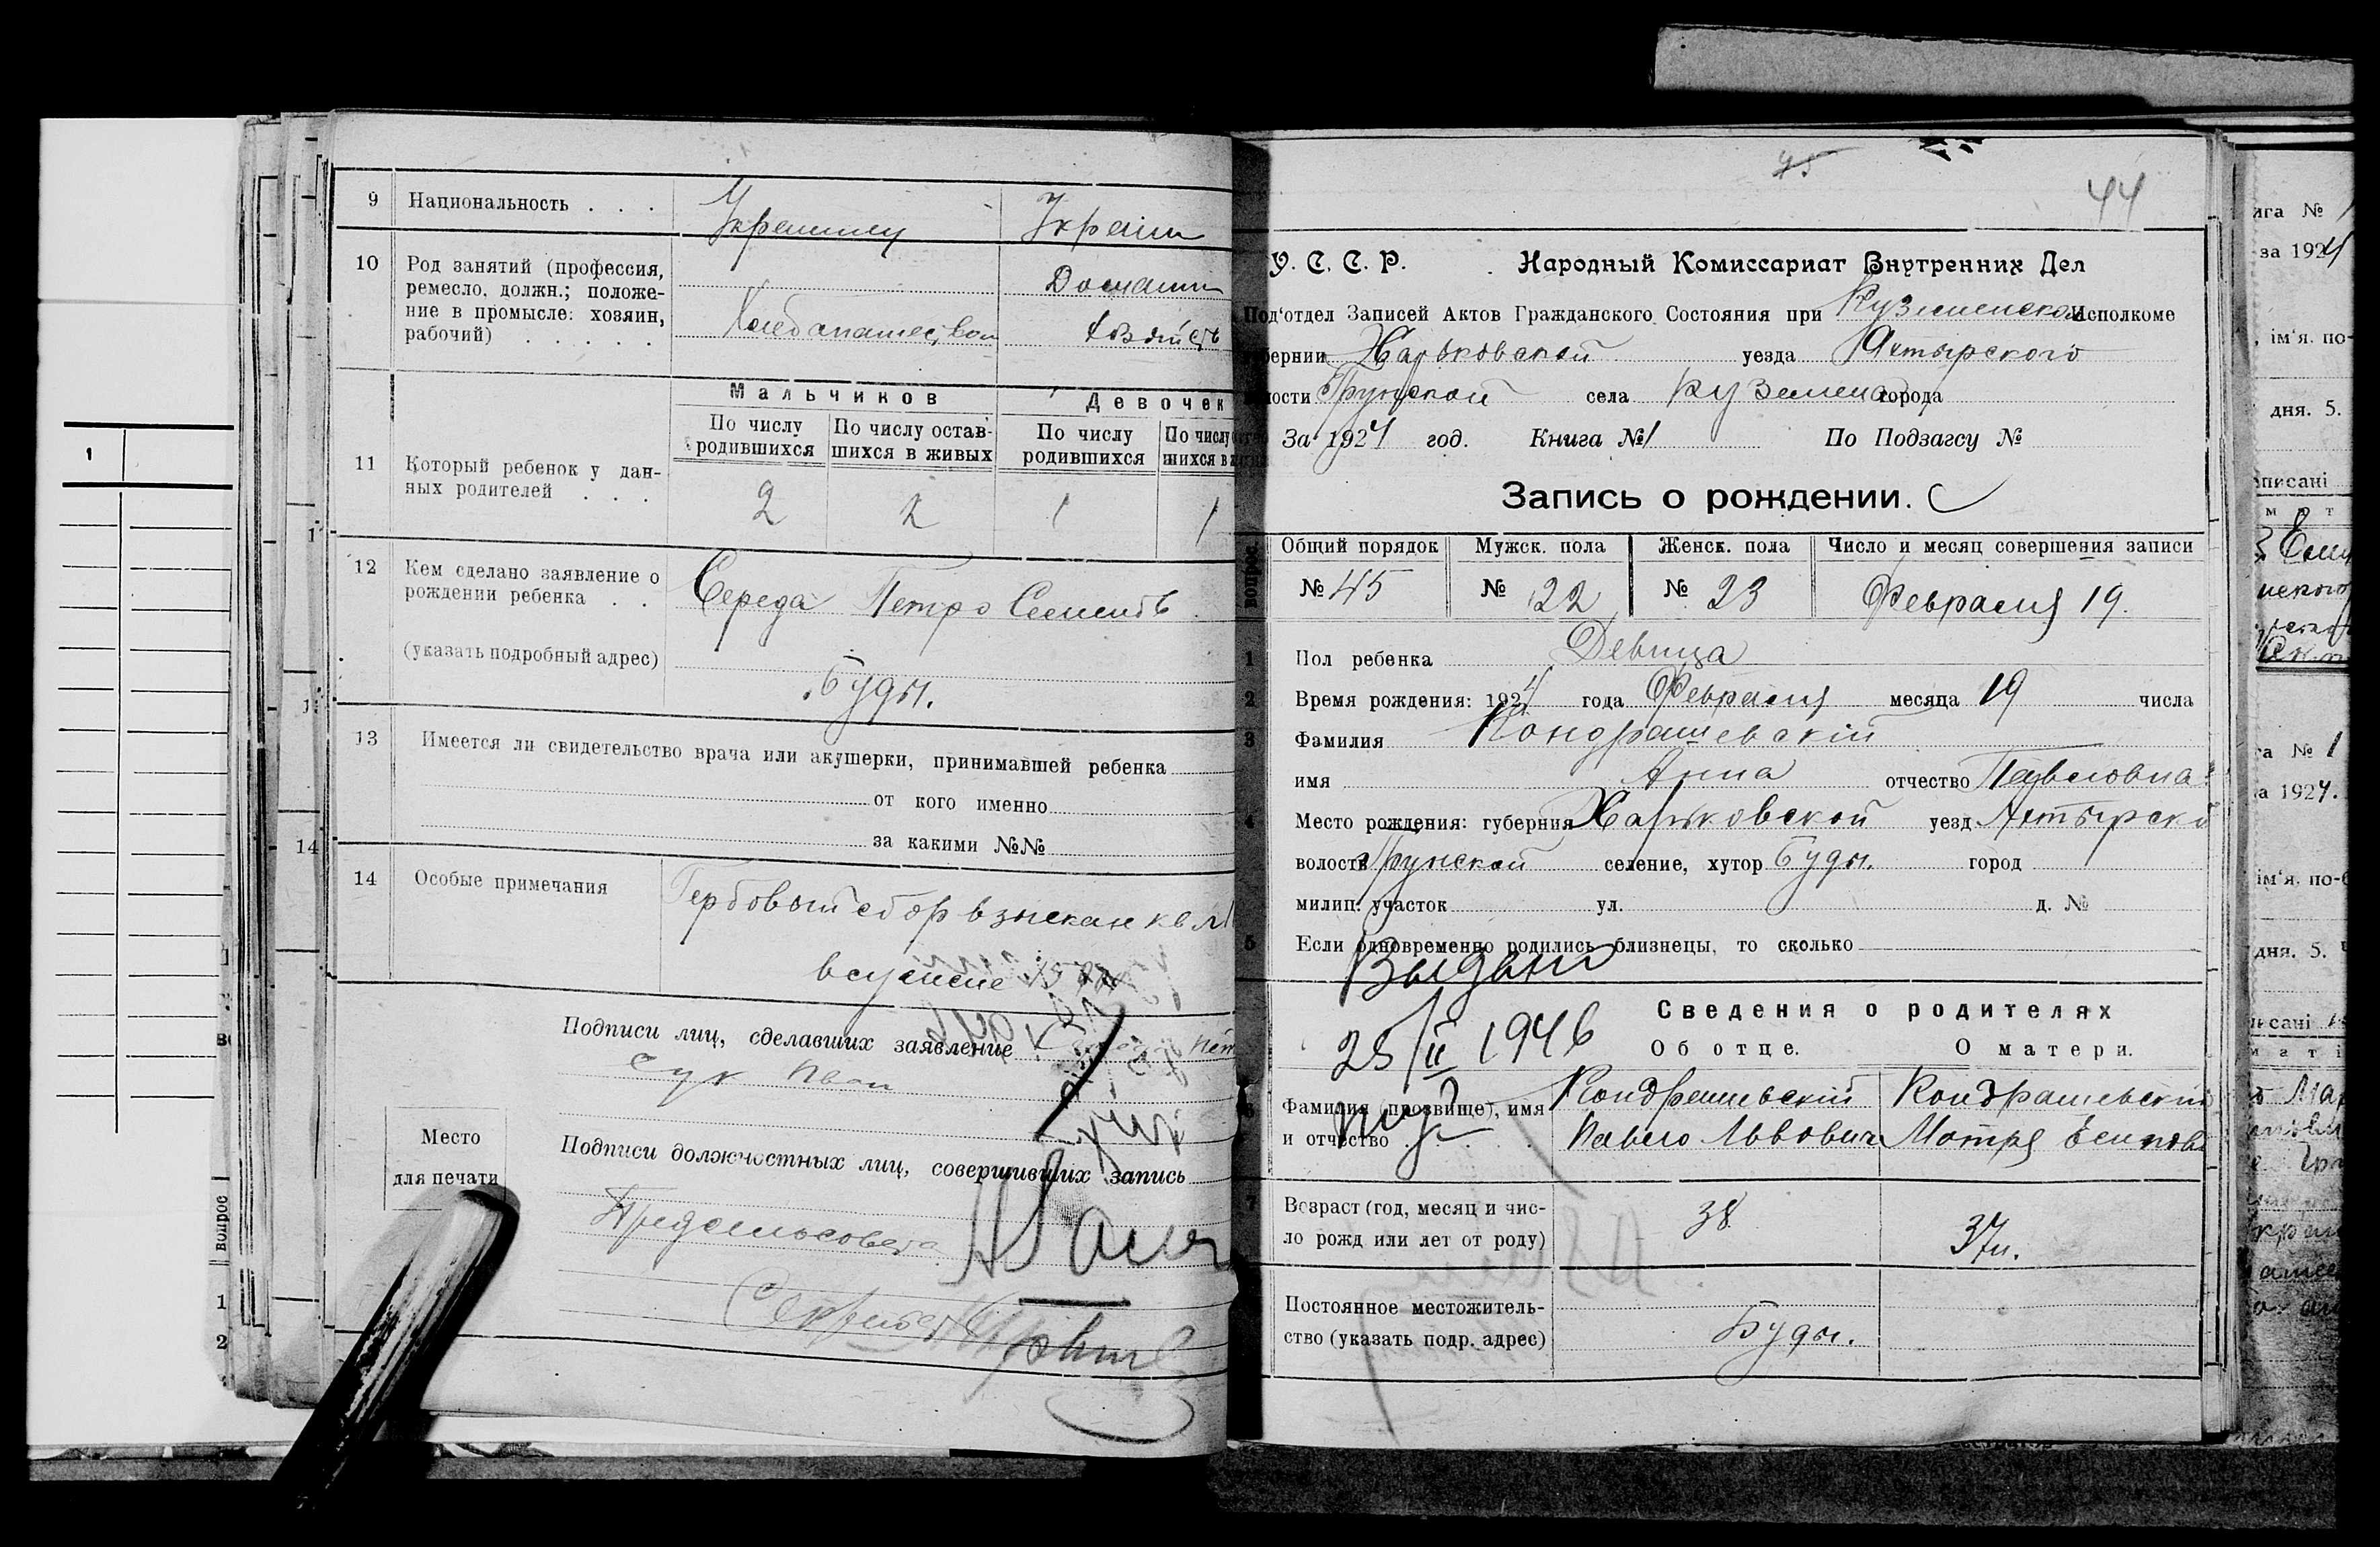 9 Национальность . . . Украинец Украин
10 Род занятий (профессия,
ремесло, должн.; положе-
ние в промысле: хозяин,
рабочий) . . . . .
Домашн
Хлебопашество хозяйств
11 Который ребенок у дан-
ных родителей . . .
Мальчиков Девочек
По числу родившихся По числу остав-шихся в живых По числу родившихся По числу
2 2 1 1
12 Кем сделано заявление о
рождении ребенка . .
(указать подробный адрес)
Середа Петро Семенов
Буды.
13 Имеется ли свидетельство врача или акушерки, принимавшей ребенка
от кого именно
за какими №№
14 Особые примечания
Гербовый сбор взыскан
в сумме 15
Подписи лиц, сделавших заявление
Сук Иван
Место
для печати
Подписи должностных лиц, совершивших запись
Предсельсовета
Секретарь
75
44
У. С. С. Р. Народный Комиссариат Внутренних Дел
Под'отдел Записей Актов Гражданского Состояния при Куземенском Исполкоме
губернии Харьковской уезда Ахтырского
волости Грунской села Куземена города
За 1924 год. Книга № 1 По Подзагсу №
Запись о рождении.
Общий порядок Мужск. пола Женск. пола Число и месяц совершения записи
№ 45 № 22 № 23 Февраля 19.
1 Пол ребенка Девица
2 Время рождения: 1924 года Февраля месяца 19 числа
3 Фамилия Кондрашевскій
имя Анна отчество Павловна
4 Место рождения: губерния Харьковской уезд Ахтырско
волость Грунской селение, хутор Буды. город
милиц. участок ул. д. №
5 Если одновременно родились близнецы, то сколько
Выдано
25/II 1946
Сведения о родителях
Об отце. О матери.
6 Фамилия (прозвище), имя
и отчество . . . . .
Кондрашевскій Кондрашевскій
Павло Львович Мотря Есипов
7 Возраст (год, месяц и чис-
ло рожд или лет от роду)
38 37
Постоянное местожитель-
ство (указать подр. адрес)
Буды.